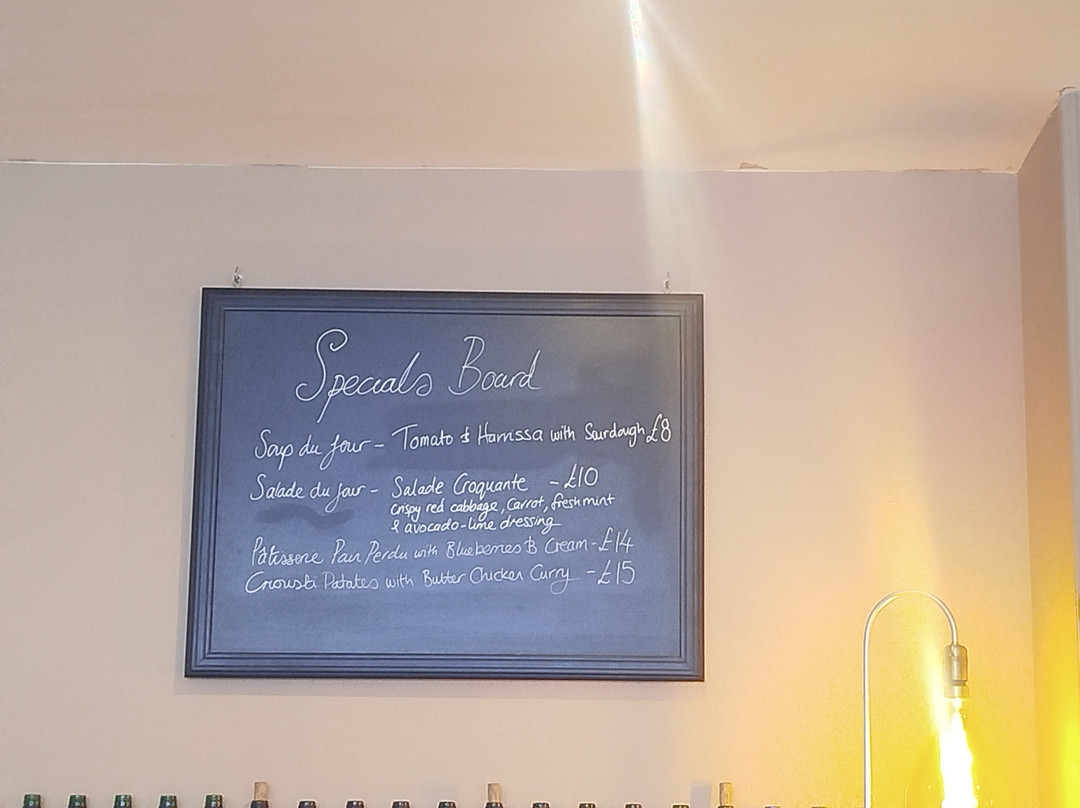 Specials Board
Soup du jour - Tomato & Harrissa with Sourdough £8
Salade du jour - Salade Croquante - £10
crispy red cabbage, carrot, fresh mint
& avocado-lime dressing
Pâtisserie Pain Perdu with Blueberries & Cream - £14
Crousti Patates with Butter Chicken Curry - £15